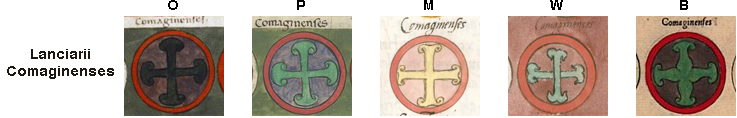 O P M W B
Lanciarii
Comaginenses
Comaginenses
Comaginenses
Comaginenses
Comaginenses
Comaginenses